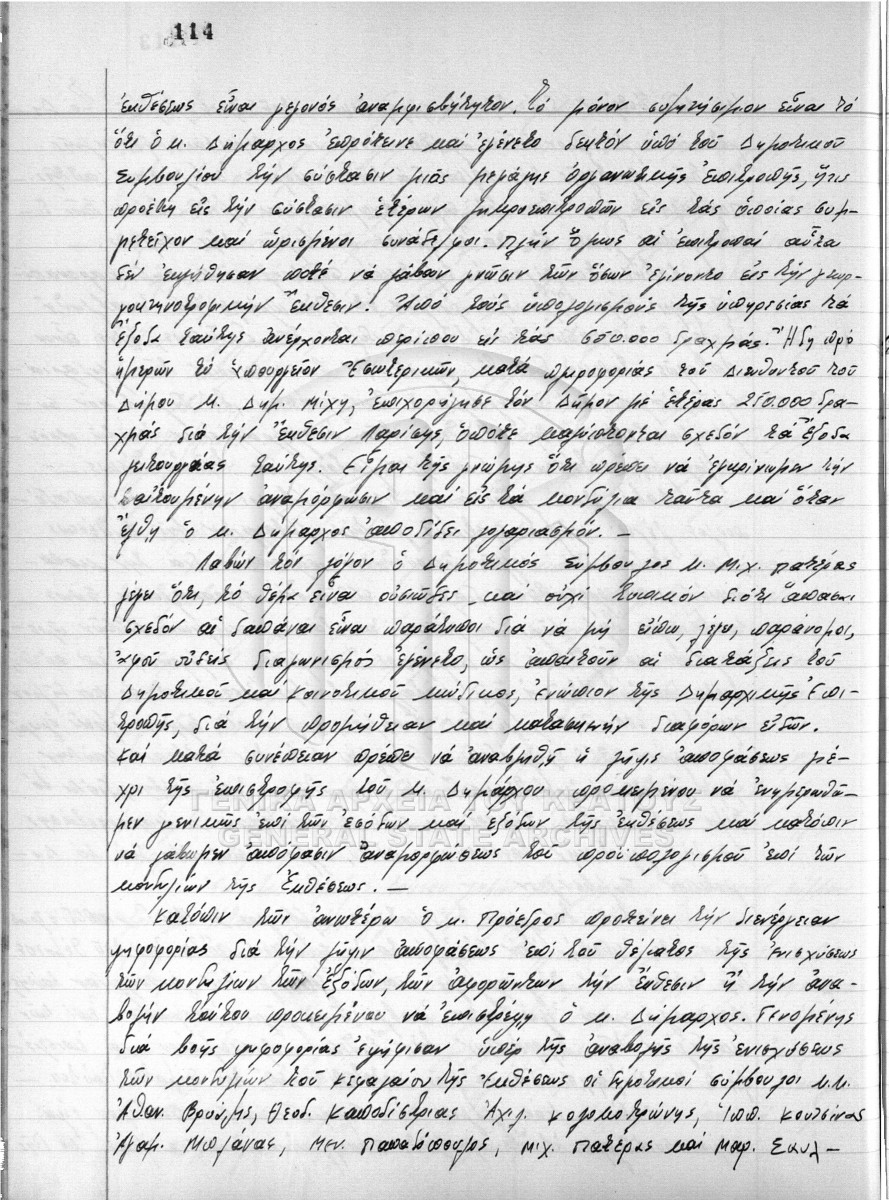 114
ἐκθέσεως εἶναι γεγονός ἀναμφισβήτητον. Τό μόνον συζητήσιμον εἶναι τό
ὅτι ὁ κ. Δήμαρχος ἐπρότεινε καί ἐγένετο δεκτόν ὑπό τοῦ Δημοτικοῦ
Συμβουλίου τήν σύστασιν μιᾶς μεγάλης ὀργανωτικῆς ἐπιτροπῆς, ἥτις
προέβη εἰς τήν σύστασιν ἑτέρων μικροεπιτροπῶν εἰς τάς ὁποίας συμ-
μετεῖχον καί ὡρισμένοι συνάδελφοι. Πλήν ὅμως αἱ ἐπιτροπαί αὗται
δέν ἐκλήθησαν ποτέ νά λάβουν γνῶσιν τῶν ὅσων ἐγίνοντο εἰς τήν γεωρ-
γοκτηνοτροφικήν Ἔκθεσιν. Ἀπό τούς ὑπολογισμούς τῆς ὑπηρεσίας τά
ἔξοδα ταύτης ἀνέρχονται περίπου εἰς τάς 650.000 δραχμάς. Ἤδη πρό
ἡμερῶν τό Ὑπουργεῖον Ἐσωτερικῶν, κατά πληροφορίας τοῦ Διευθυντοῦ τοῦ
Δήμου κ. Δημ. Μίχη, ἐπιχορήγησε τόν Δῆμον μέ ἑτέρας 250.000 δρα-
χμάς διά τήν Ἔκθεσιν Λαρίσης, ὁπότε καλύπτονται σχεδόν τά ἔξοδα
λειτουργίας ταύτης. Εἶμαι τῆς γνώμης ὅτι πρέπει νά ἐγκρίνωμεν τήν
ζητουμένην ἀναμόρφωσιν καί εἰς τά κονδύλια ταῦτα καί ὅταν
ἔλθῃ ὁ κ. Δήμαρχος ἀποδίδει λογαριασμόν. –
Λαβών τόν λόγον ὁ Δημοτικός Σύμβουλος κ. Μιχ. Πατέρας
λέγει ὅτι, τό θέμα εἶναι οὐσιῶδες καί οὐχί τυπικόν διότι ἅπασαι
σχεδόν αἱ δαπάναι εἶναι παράτυποι διά νά μή εἴπω, λέγει, παράνομοι,
ἀφοῦ οὐδείς διαγωνισμός ἐγένετο, ὡς ἀπαιτοῦν αἱ διατάξεις τοῦ
Δημοτικοῦ καί Κοινοτικοῦ Κώδικος, ἐνώπιον τῆς Δημαρχικῆς Ἐπι-
τροπῆς, διά τήν προμήθειαν καί κατασκευήν διαφόρων εἰδῶν.
Καί κατά συνέπειαν πρέπει νά ἀναβληθῇ ἡ λῆψις ἀποφάσεως μέ-
χρι τῆς ἐπιστροφῆς τοῦ κ. Δημάρχου προκειμένου νά ἐνημερωθῶ-
μεν γενικῶς ἐπί τῶν ἐσόδων καί ἐξόδων τῆς ἐκθέσεως καί κατόπιν
νά λάβωμεν ἀπόφασιν ἀναμορφώσεως τοῦ προϋπολογισμοῦ ἐπί τῶν
κονδυλίων τῆς Ἐκθέσεως. –
Κατόπιν τῶν ἀνωτέρω ὁ κ. Πρόεδρος προτείνει τήν διενέργειαν
ψηφοφορίας διά τήν λῆψιν ἀποφάσεως ἐπί τοῦ θέματος τῆς ἐνισχύσεως
τῶν κονδυλίων τῶν Ἐξόδων, τῶν ἀφορώντων τήν Ἔκθεσιν ἤ τήν ἀνα-
βολήν τούτου προκειμένου νά ἐπιστρέψῃ ὁ κ. Δήμαρχος. Γενομένης
διά βοῆς ψηφοφορίας ἐψήφισαν ὑπέρ τῆς ἀναβολῆς τῆς ἐνισχύσεως
τῶν κονδυλίων τοῦ κεφαλαίου τῆς Ἐκθέσεως οἱ δημοτικοί σύμβουλοι κ.κ.
Ἀθαν. Βρούζης, Θεοδ. Καποδίστριας Ἀχιλ. Κολοκοτρώνης, Ἱππ. Κουτσίνας
Ἀγαμ. Μπλάνας, Μεν. Παπαδόπουλος, Μιχ. Πατέρας καί Μαρ. Σαυλ-
ΓΕΝΙΚΑ ΑΡΧΕΙΑ ΤΟΥ ΚΡΑΤΟΥΣ
GENERAL STATE ARCHIVES